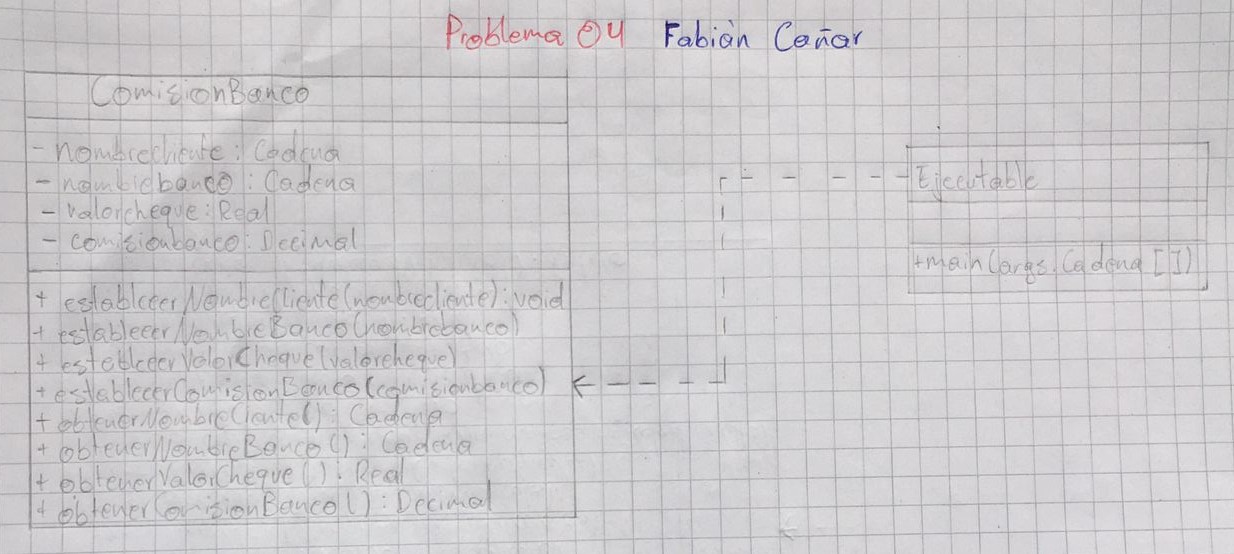 Problema 04 Fabián Cañar
ComisionBanco
- nombrecliente : Cadena
- nombrebanco : Cadena
- valorcheque : Real
- comisionbanco : Decimal
+ establecerNombreCliente(nombrecliente) : void
+ establecerNombreBanco(nombrebanco)
+ establecerValorCheque(valorcheque)
+ establecerComisionBanco(comisionbanco)
+ obtenerNombreCliente() : Cadena
+ obtenerNombreBanco() : Cadena
+ obtenerValorCheque() : Real
+ obtenerComisionBanco() : Decimal
Ejecutable
+main(args: Cadena [])